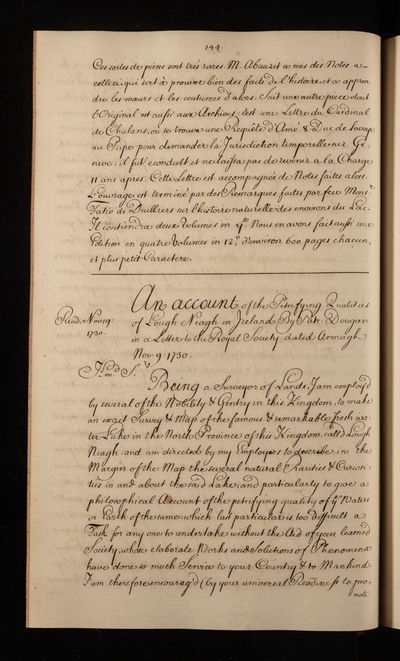 144
Ces sortes de pièces sont très rares. M. Abauzit a mis des Notes a
celle ci, qui sert à prouver bien des faits de l'histoire, et a appren
dre les mœurs et les coutumes d'alors. Suit une autre piece dont
l'Original est aussi aux Archives, c'est une Lettre du Cardinal
de Chalans, où se trouve une Requête d'Amé 8 Duc de Savoye
au Pape pour demander la Jurisdiction temporelle sur Ge-
neve; il fut econduit et ne laissa pas de revenir a la Charge
11 ans après. Cette Lettre est accompagnée de Notes faites alors.
L'ouvrage est terminé par des Remarques faites par feu Monsr.
Fatio de Duilliers sur l'histoire naturelle des environs du Lac.
Il contiendra deux Volumes in 4to. Nous en avons fait aussi une
Edition en quatre Volumes in 12o. d'environ 600 pages chacun,
et plus petit Caractere.
An account of the Petrifying Qualities
Read Nov. 19. of Lough Neagh in Ireland By Patr. Dougan
1730. in a Letter to the Royal Society dated Armagh
Nov. 9 1730.
Being a Surveyor of Lands, I am employ'd
by several of the Nobility & Gentry in this Kingdom, to make
an exact Survey & Map of the famous & remarkable fresh wa-
ter Lake in the North Province of this Kingdom, call'd Lough
Neagh: and am directed by my Employers to describe in the
Margin of the Map the several natural Rarities & Curiosi
ties in and about the said Lake, and particularly to give a
philosophical Account of the petrifying quality of ye Water
or Earth of the same: which last particular is too difficult a
Task for any one to undertake without the Aid of your learned
Society, whose elaborate Works and Solutions of Phenomena
have done so much Service to your Country & to Mankind.
I am therefore encourag'd (by your universal Readiness to pro-
mote